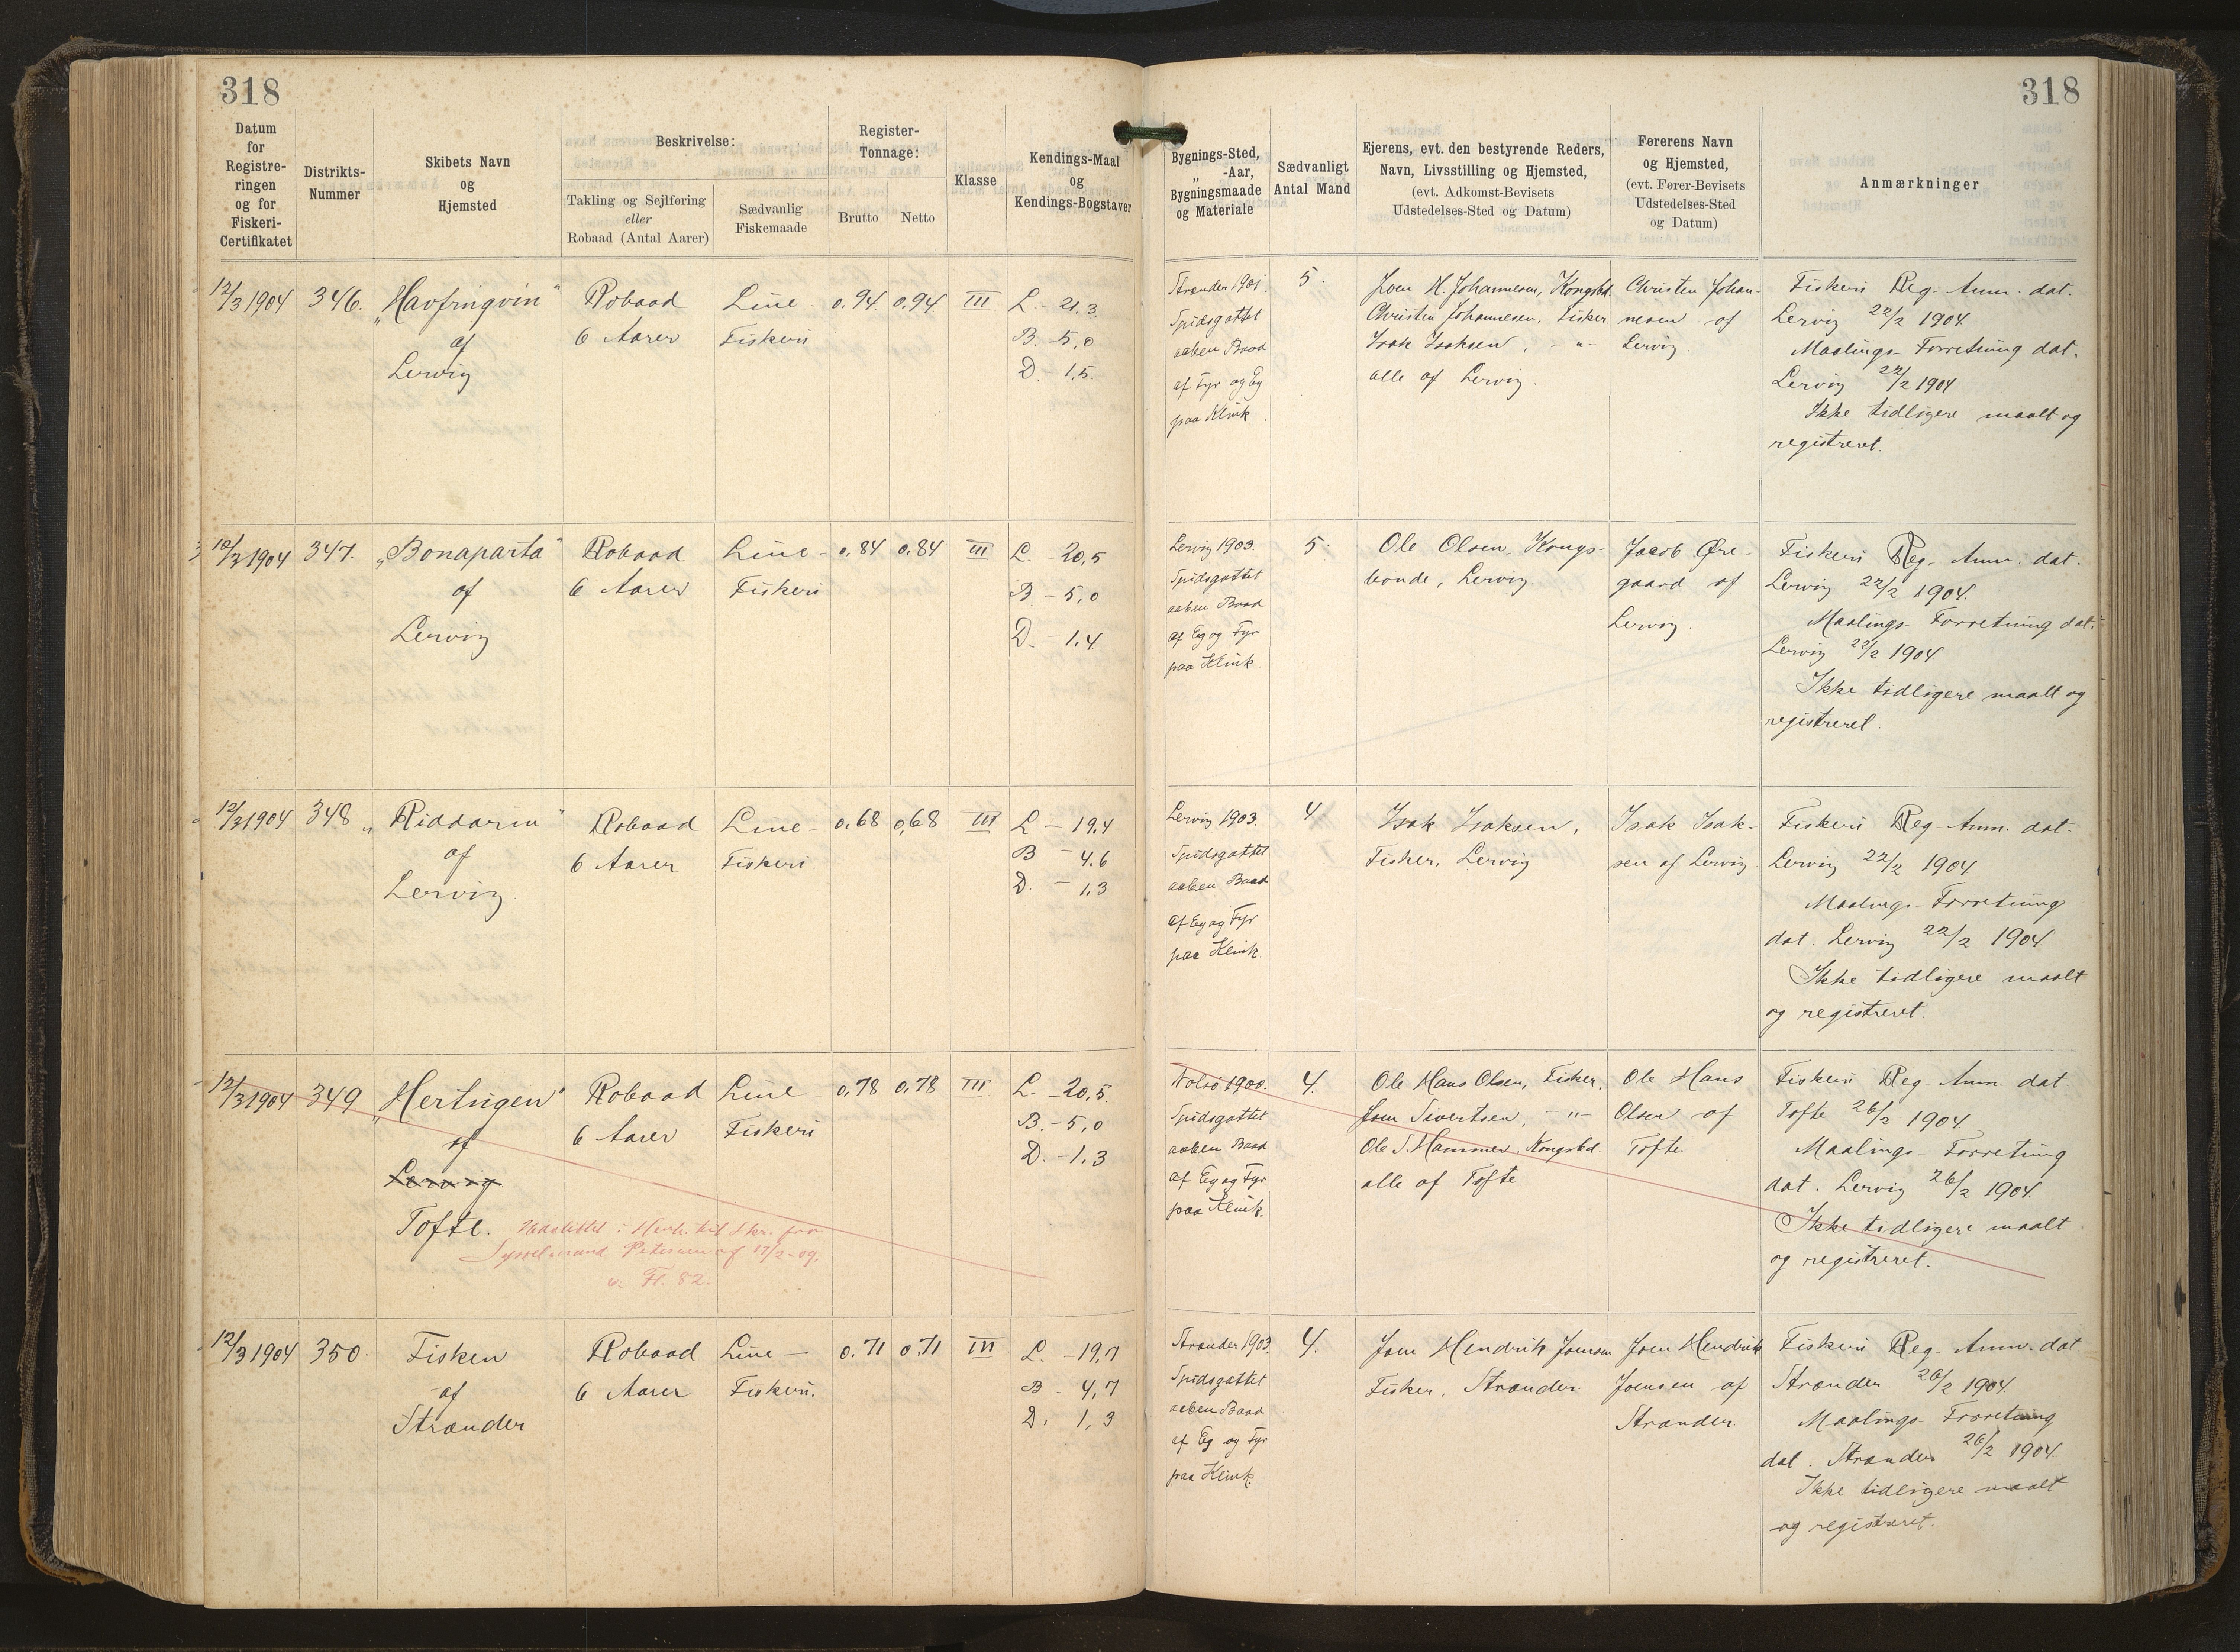 318
318
Datum for Registreringen og for Fiskeri-Certifikatet
Distrikts-Nummer
Skibets Navn og Hjemsted
Beskrivelse:
Takling og Sejlføring eller Robaad (Antal Aarer)
Sædvanlig Fiskemaade
Register-Tonnage:
Brutto
Netto
Klasse
Kendings-Maal og Kendings-Bogstaver
Bygnings-Sted, „ -Aar, Bygningsmaade og Materiale
Sædvanligt Antal Mand
Ejerens, evt. den bestyrende Reders, Navn, Livsstilling og Hjemsted, (evt. Adkomst-Bevisets Udstedelses-Sted og Datum)
Førerens Navn og Hjemsted, (evt. Fører-Bevisets Udstedelses-Sted og Datum)
Anmærkninger
12/3 1904
346.
„Havfrugvin“
af
Lervig
Robaad
6 Aarer
Line-
Fiskeri
0.94
0.94
III
L. - 21.3
B. - 5,0
D. - 1,5.
Strander 1901.
Spidsgattet
aaben Baad
af Fyr og Eg
paa Klink.
5.
Joen H. Johannesen, Kongsbd.
Christen Johannesen, Fisker
Isak Isaksen, - „ -
alle af Lervig.
Christen Johan-
nesen af
Lervig.
Fiskeri Reg. Anm. dat.
Lervig 22/2 1904.
Maalings-Forretning dat.
Lervig 22/2 1904
Ikke tidligere maalt og
registreret.
12/3 1904
347.
„Bonaparta“
af
Lervig
Robaad
6 Aarer
Line-
Fiskeri
0.84
0.84
III
L. - 20,5
B - 5,0
D. - 1,4
Lervig 1903.
Spidsgattet
aaben Baad
af Eg og Fyr
paa Klink.
5.
Ole Olsen, Kongs-
bonde, Lervig.
Jacob Øre-
gaard af
Lervig.
Fiskeri Reg. Anm. dat.
Lervig 22/2 1904.
Maalings-Forretning dat.
Lervig 22/2 1904.
Ikke tidligere maalt og
registreret.
12/3 1904
348
„Riddarin“
af
Lervig.
Robaad
6 Aarer
Line-
Fiskeri.
0.68
0,68
III
L - 19,4
B - 4.6
D. - 1,3
Lervig 1903.
Spidsgattet
aaben Baad
af Eg og Fyr
paa Klink.
4.
Isak Isaksen,
Fisker, Lervig
Isak Isak-
sen af Lervig
Fiskeri Reg. Anm. dat.
Lervig 22/2 1904
Maalings-Forretning
dat. Lervig 22/2 1904
Ikke tidligere maalt
og registreret.
12/3 1904
349
„Hertugen“
af
Lervig
Tofte.
Robaad
6 Aarer
Line-
Fiskeri
0,78
0,78
III
L. - 20,5.
B. - 5,0
D. - 1,3
Udslettet i Henh. til Skr. fra
Sysselmand Petersen af 17/2-09,
v. Fl. 82.
Nolsø 1900.
Spidsgattet
aaben Baad
af Eg og Fyr
paa Klink.
4.
Ole Hans Olsen, Fisker,
Joen Sivertsen, - „ -
Ole S. Hammer, Kongsbd.
alle af Tofte
Ole Hans
Olsen af
Tofte.
Fiskeri Reg. Anm. dat
Tofte 26/2 1904.
Maalings-Forretning
dat. Lervig 26/2 1904.
Ikke tidligere maalt
og registreret.
12/3 1904
350.
Fisken
af
Strander
Robaad
6 Aarer
Line-
Fiskeri.
0.71
0.71
III
L. - 19,7
B - 4,7
D. 1,3
Strander 1903.
Spidsgattet
aaben Baad
af Eg og Fyr
paa Klink.
4.
Joen Hendrik Joensen
Fisker, Strander.
Joen Hendrik
Joensen af
Strander.
Fiskeri Reg. Anm. dat.
Strander 26/2 1904
Maalings-Forretning
dat. Strander 26/2 1904.
Ikke tidligere maalt
og registreret.